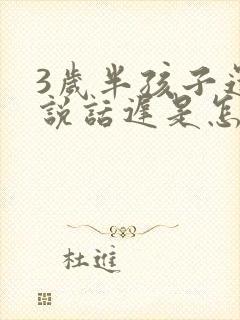 3歲半孩子
説話遲是怎
杜進